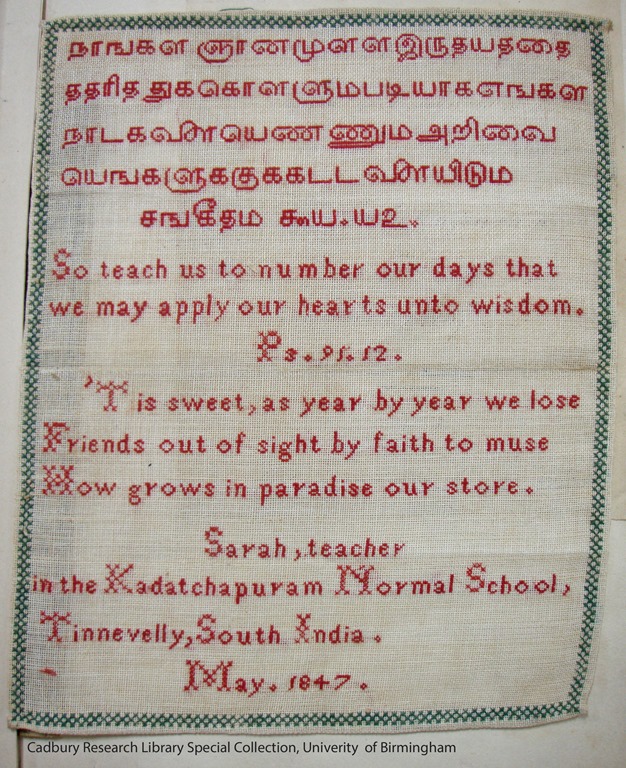 நாஙகள ஞானமுளள இருதயததை
ததரித துககொளளுமபடியாகஎஙகள
நாடகளையெண ணும அறிவை
யெஙகளுககுககடட ளையிடும
சஙகீதம ௯ய.ய௨.
So teach us to number our days that
we may apply our hearts unto wisdom.
Ps. 91. 12.
'Tis sweet, as year by year we lose
Friends out of sight by faith to muse
How grows in paradise our store.
Sarah, teacher
in the Kadatchapuram Normal School,
Tinnevelly, South India.
May. 1847.
Cadbury Research Library Special Collection, Univerity of Birmingham